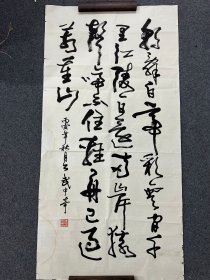 朝辭白帝彩雲間千
里江陵一日還兩岸猿
聲啼不住輕舟已過
萬重山
年秋月書武中奇